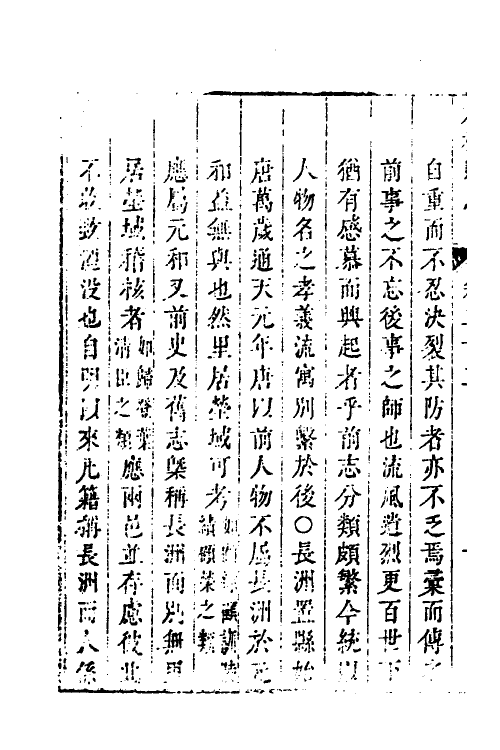 自重而不忍決裂其防者亦不乏焉彙而傳之
前事之不忘後事之師也流風遺烈更百世下
猶有感慕而興起者乎前志分類頗繁今統以
人物名之孝義流寓別繫於後〇長洲置縣始
唐萬歲通天元年唐以前人物不屬長洲於元
和益無與也然里居塋域可考之類
應屬元和又前史及舊志槩稱長洲而別無里
居塋域稽核者如歸登葉清臣之類應兩邑並存慮彼此
不收致湮没也自明以來凡籍稱長洲而人係